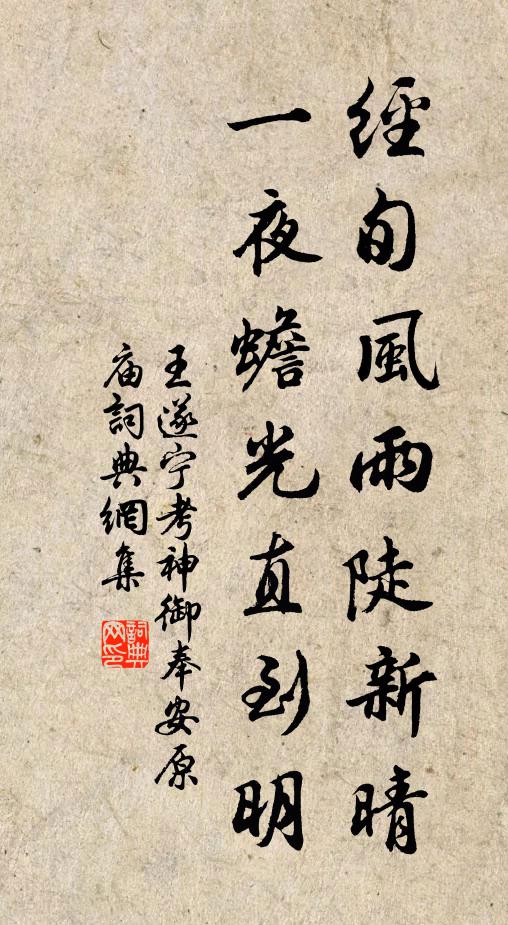 經旬風雨陡新晴
一夜蟾光直到明
王遂宁考神御奉安原
庙詞典網集
詞典
网印